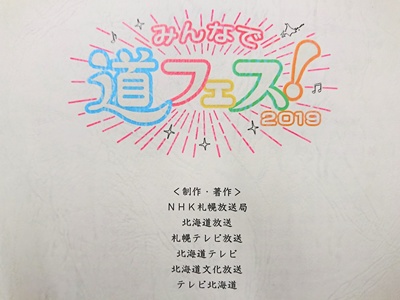 みんなで
道フェス!
2019
＜制作・著作＞
ＮＨＫ札幌放送局
北海道放送
札幌テレビ放送
北海道テレビ
北海道文化放送
テレビ北海道